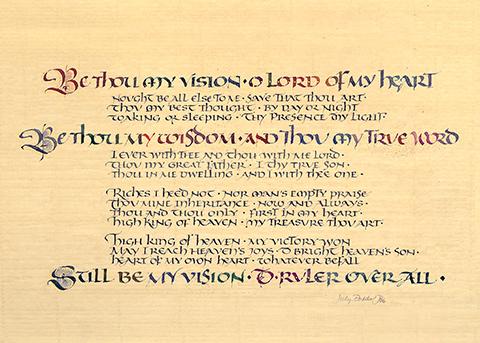 Be thou my vision · O Lord of my heart
Nought be all else to me · save that thou art ·
Thou my best thought · by day or night
Waking or sleeping · Thy presence my light ·
Be thou my wisdom · and thou my true word
I ever with thee and thou with me Lord ·
Thou my great Father · I thy true son ·
Thou in me dwelling · and I with thee one ·
Riches I heed not · nor man's empty praise
Thou mine inheritance · now and always ·
Thou and thou only · first in my heart ·
High king of heaven · my treasure thou art ·
High king of heaven · my victory won
May I reach heaven's joys · O bright heaven's son ·
Heart of my own heart · whatever befall
Still be my vision · O ruler over all ·